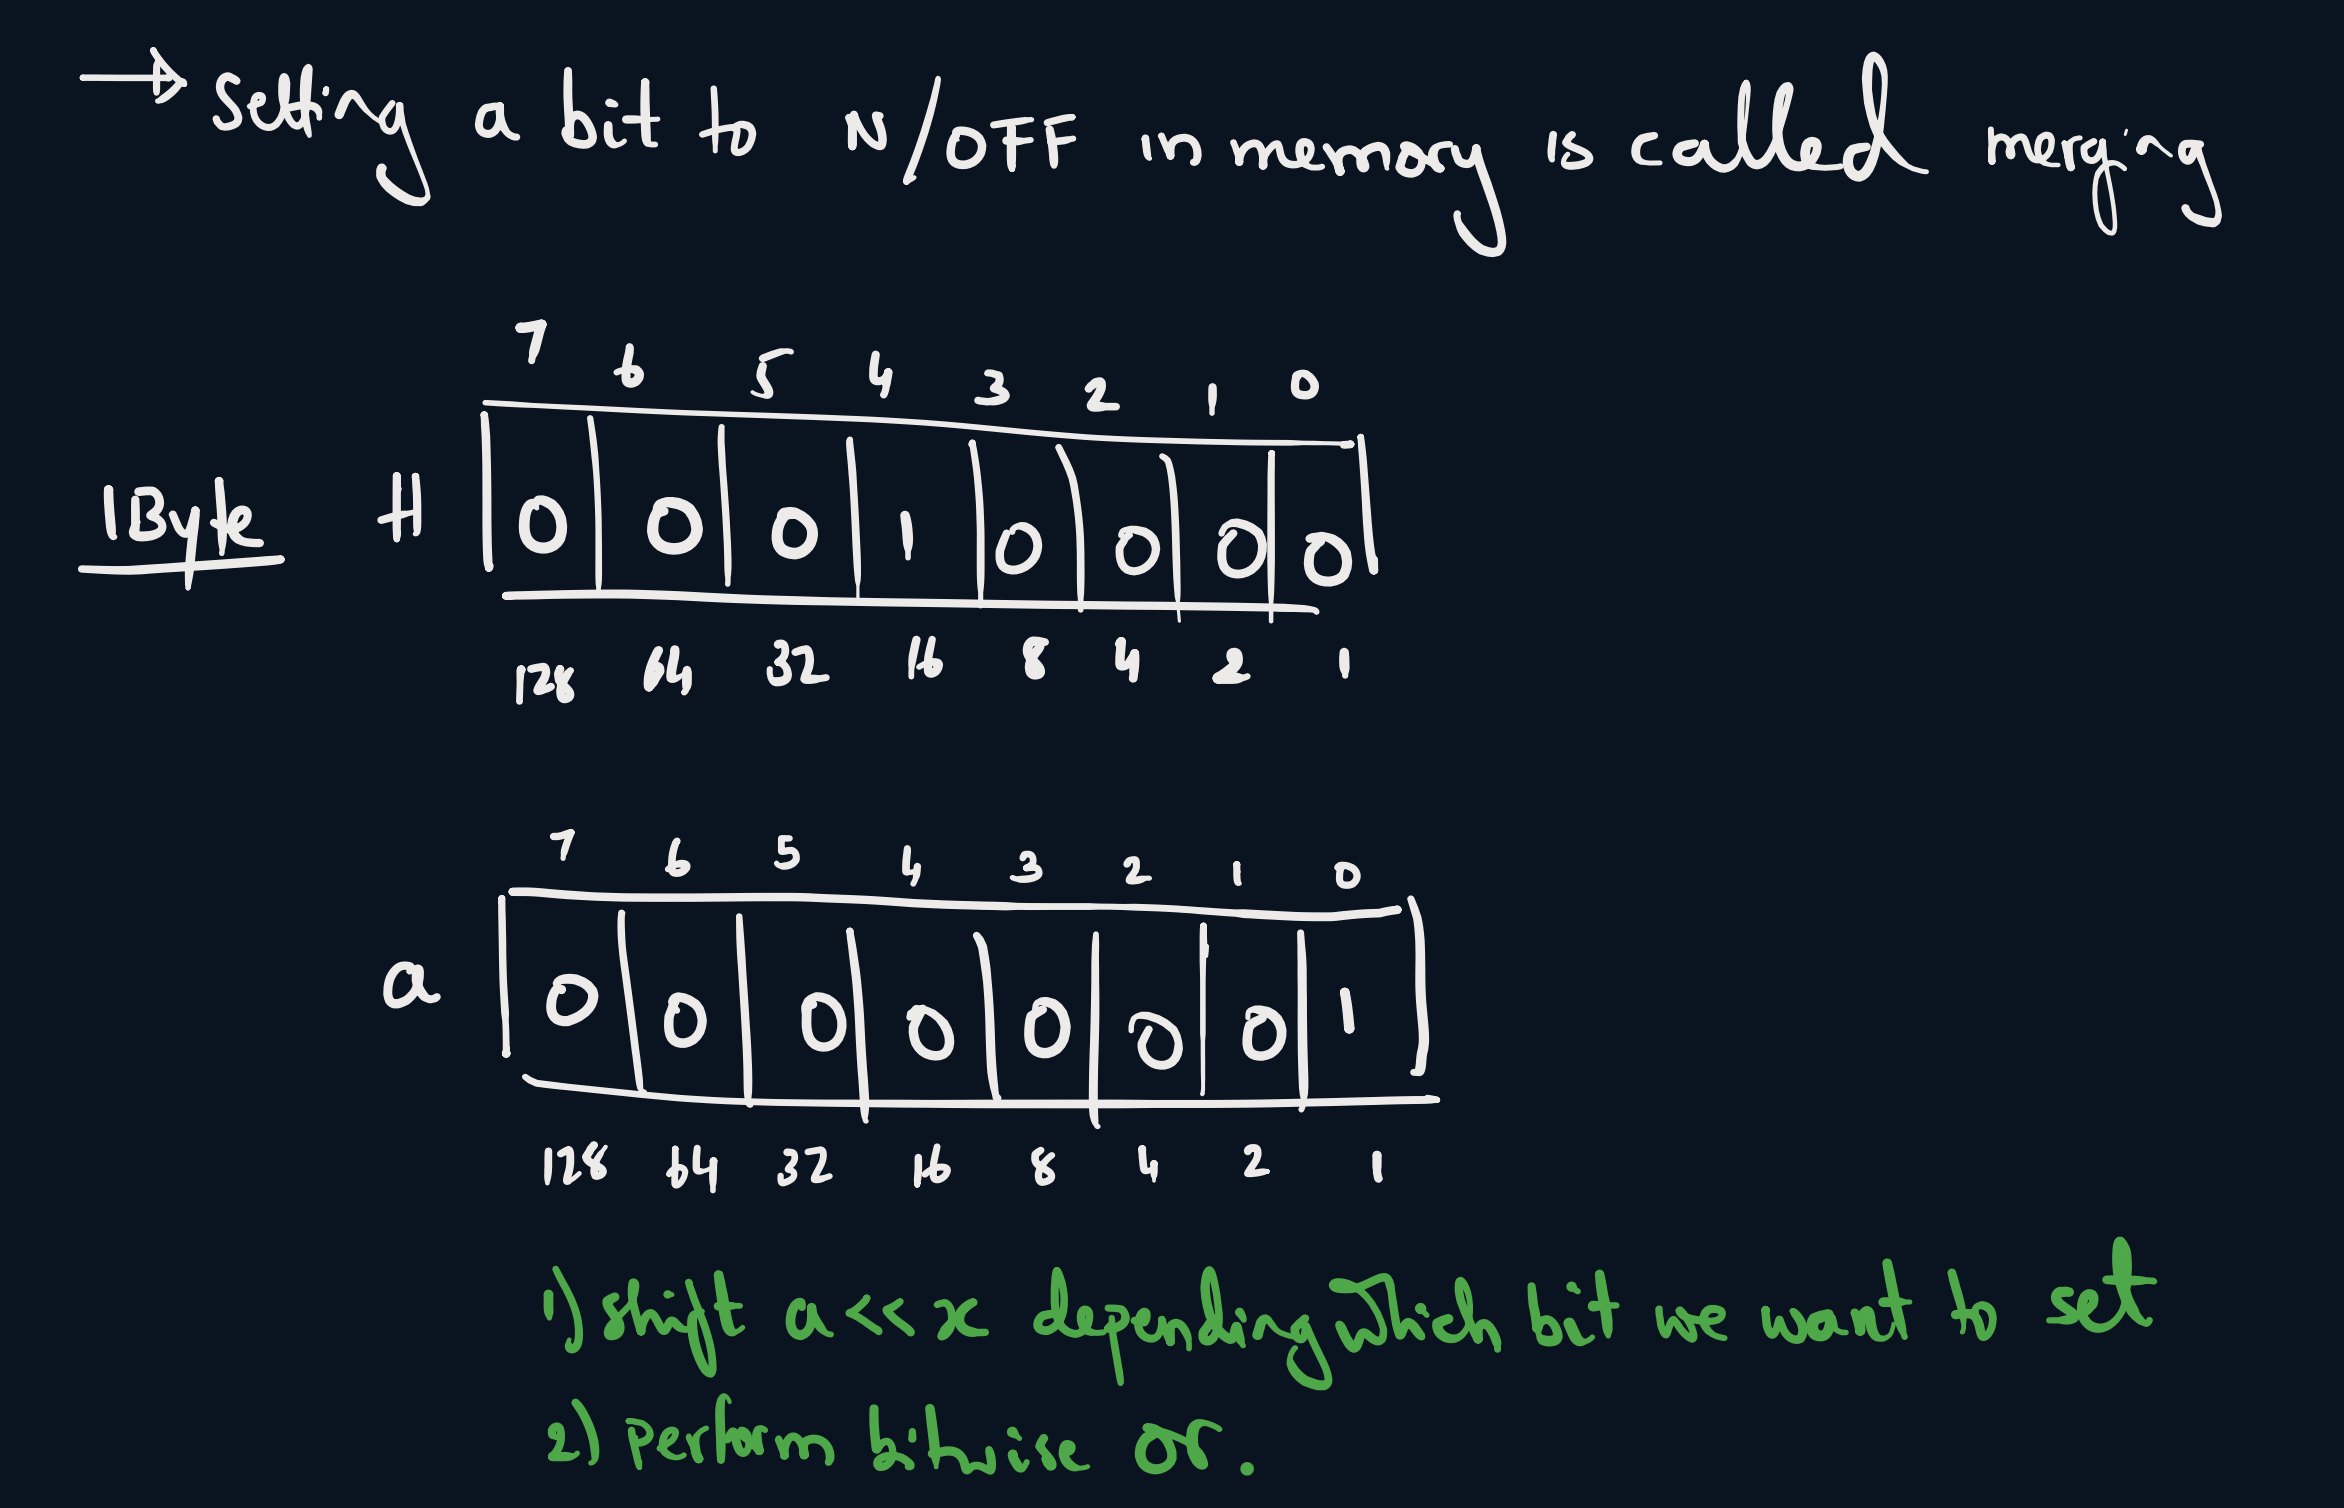 → setting a bit to N/OFF in memory is called merging
7 6 5 4 3 2 1 0
1Byte H 0 0 0 1 0 0 0 0
128 64 32 16 8 4 2 1
7 6 5 4 3 2 1 0
a 0 0 0 0 0 0 0 1
128 64 32 16 8 4 2 1
1) shift a << x depending which bit we want to set
2) perform bitwise or.